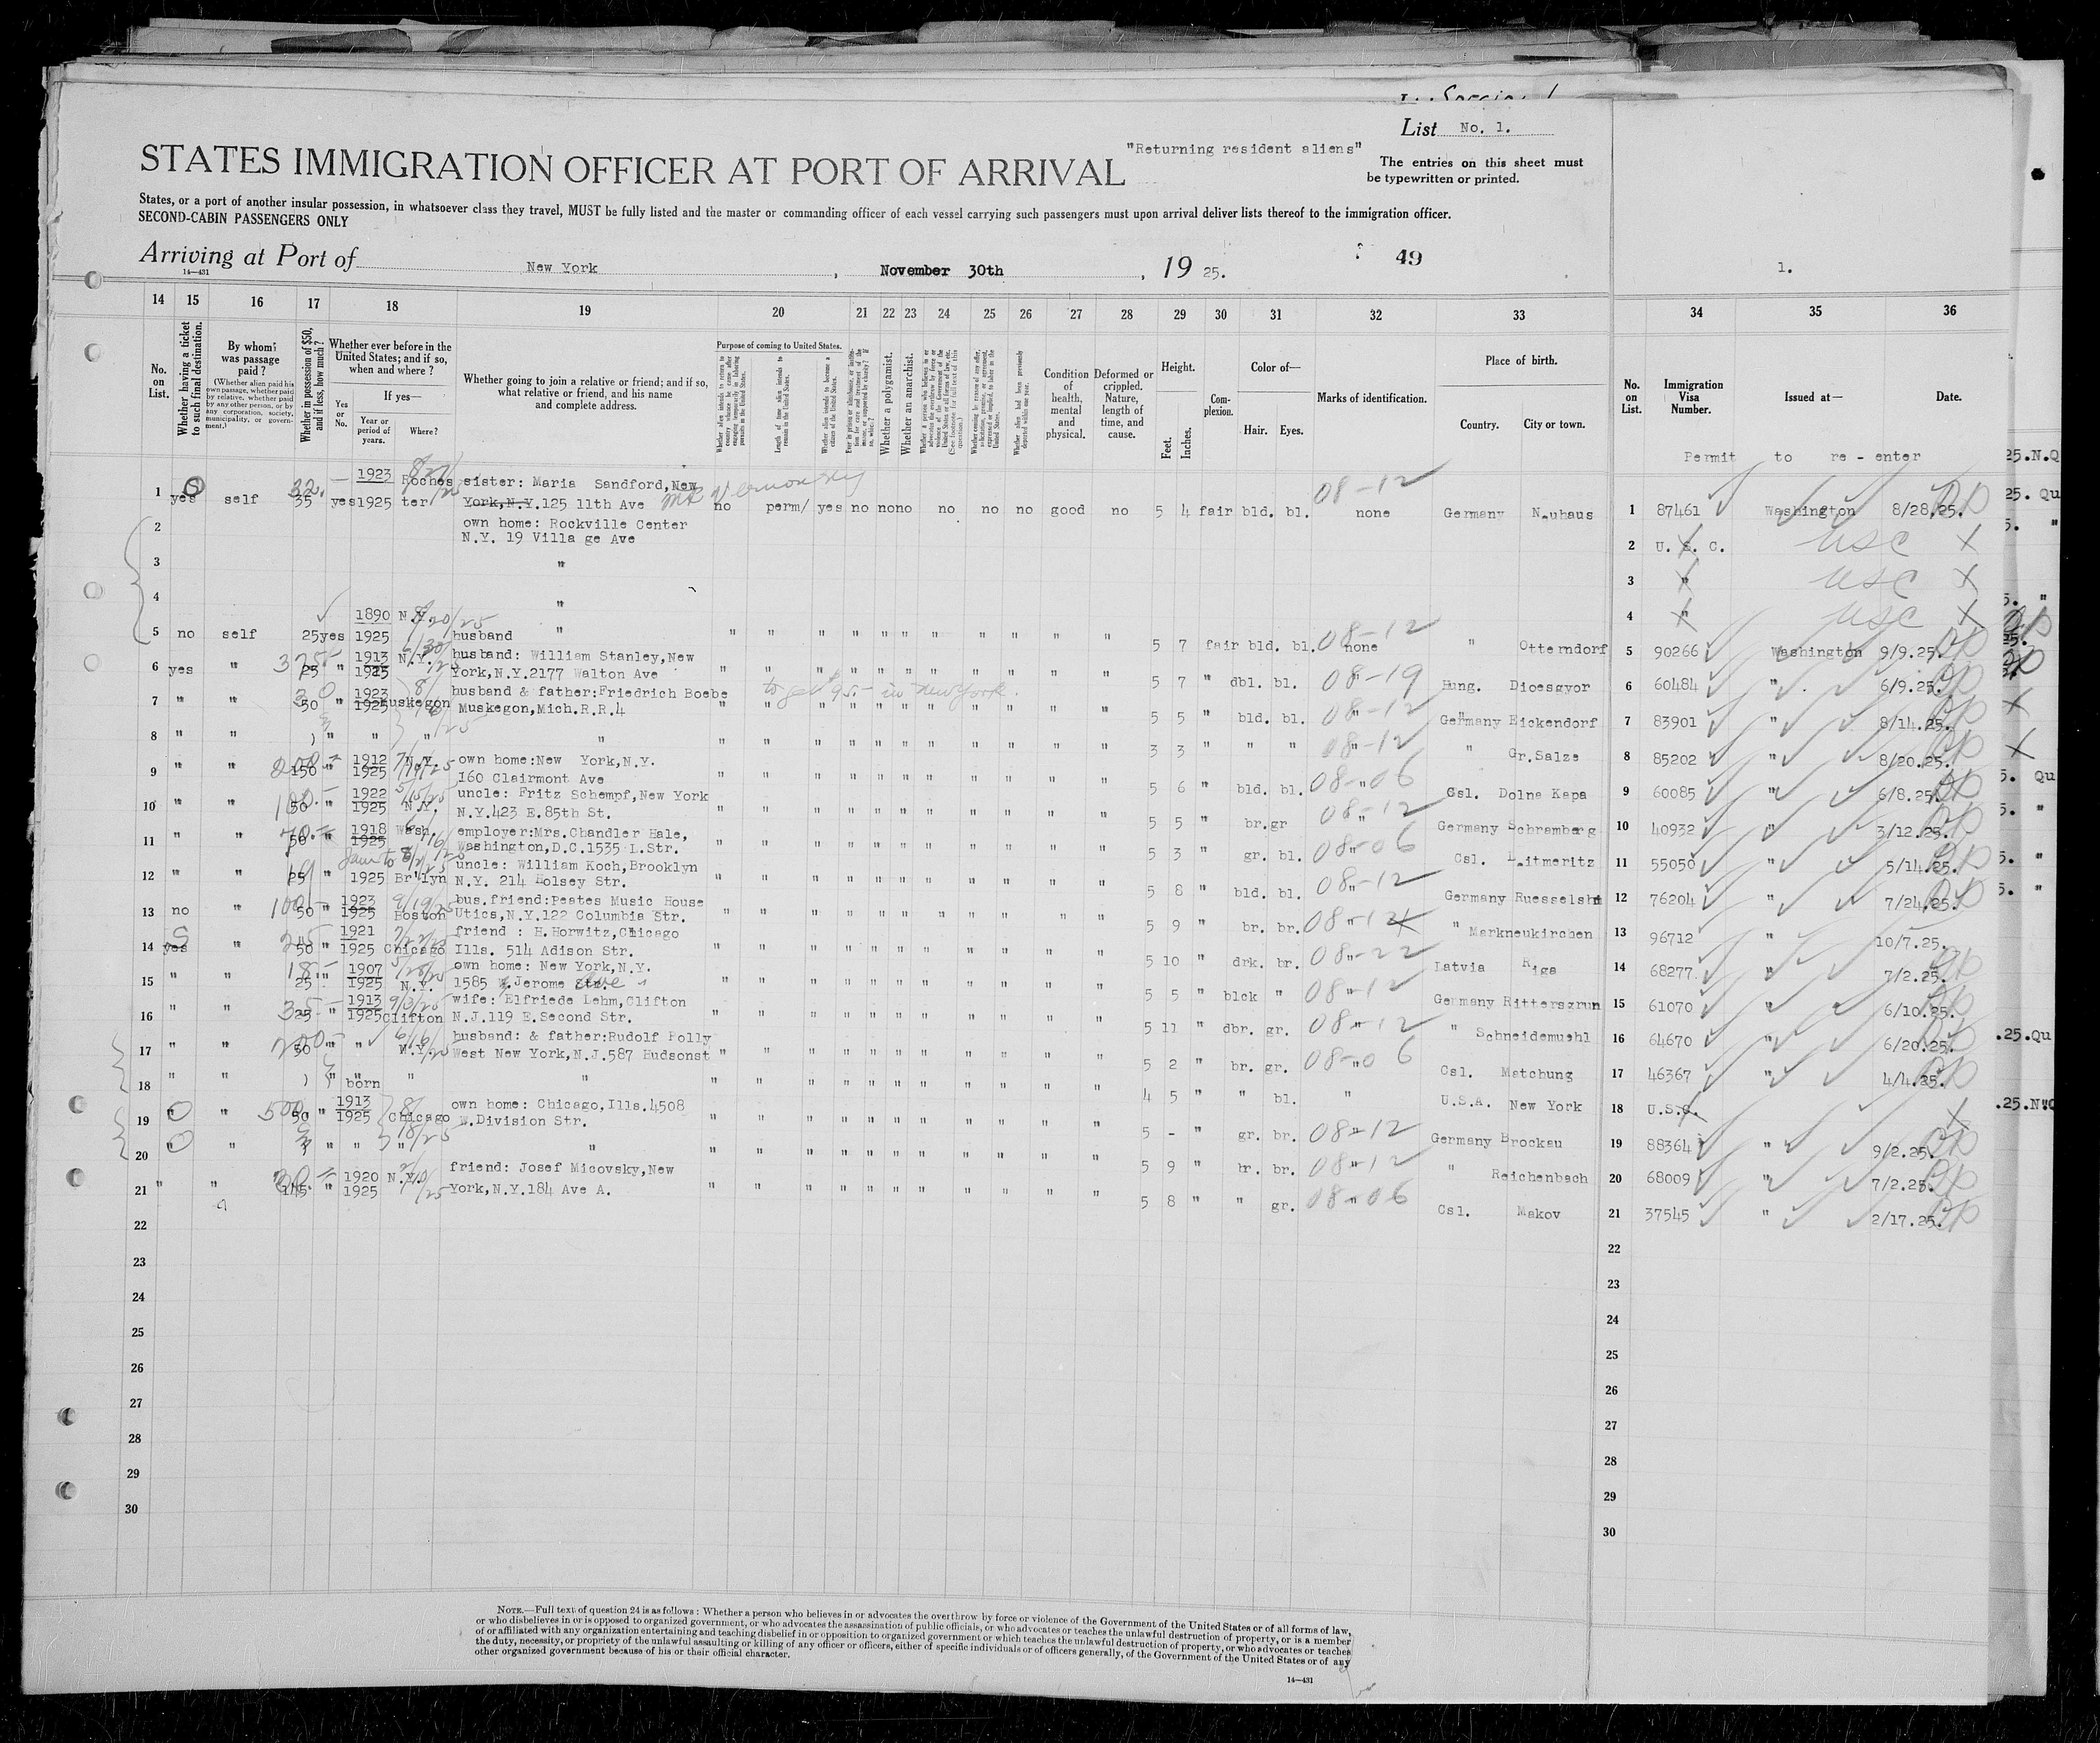 List No. 1.
"Returning resident aliens"
STATES IMMIGRATION OFFICER AT PORT OF ARRIVAL
The entries on this sheet must
be typewritten or printed.
States, or a port of another insular possession, in whatsoever class they travel, MUST be fully listed and the master or commanding officer of each vessel carrying such passengers must upon arrival deliver lists thereof to the immigration officer.
SECOND-CABIN PASSENGERS ONLY
Arriving at Port of New York , November 30th , 19 25.
49
1.
14—431
14 15 16 17 18 19 20 21 22 23 24 25 26 27 28 29 30 31 32 33 34 35 36
No. on List.
Whether having a ticket to such final destination.
By whom was passage paid?
(Whether alien paid his own passage, whether paid by relative, whether paid by any other person, or by any corporation, society, municipality, or government.)
Whether in possession of $50, and if less, how much?
Whether ever before in the United States; and if so, when and where?
If yes—
Yes or No.
Year or period of years.
Where?
Whether going to join a relative or friend; and if so, what relative or friend, and his name and complete address.
Purpose of coming to United States.
Whether alien intends to return to country whence he came after engaging temporarily in laboring pursuits in the United States.
Length of time alien intends to remain in the United States.
Whether alien intends to become a citizen of the United States.
Whether a polygamist.
Whether an anarchist.
Condition of health, mental and physical.
Deformed or crippled. Nature, length of time, and cause.
Height.
Feet.
Inches.
Complexion.
Color of—
Hair. Eyes.
Marks of identification.
Place of birth.
Country. City or town.
No. on List.
Immigration Visa Number.
Issued at—
Date.
Permit to re - enter
1 yes self 32. 35 yes 1923 1925 Rochester sister: Maria Sandford, New
York, N.Y. 125 11th Ave no perm/ yes no no no no no no good no 5 4 fair bld. bl. 08-12 none Germany Neuhaus 1 87461 Washington 8/28.25.
2 own home: Rockville Center
N.Y. 19 Village Ave 2 U. S. C. USC X
3 " 3 " USC X
4 " 4 " USC X
5 no self 25 yes 1890 1925 N.Y. husband " " " " " " " " " " " " " 5 7 fair bld. bl. 08-12 none " Otterndorf 5 90266 Washington 9/9.25.
6 yes " 375- 25 " 1913 1925 N.Y. husband: William Stanley, New
York, N.Y. 2177 Walton Ave " " " " " " " " " " " 5 7 " dbl. bl. 08-19 " Hung. Diosgyor 6 60484 " 6/9.25.
to get 95.- in New York.
7 " " 30 50 " 1923 1925 Muskegon husband & father: Friedrich Boebe
Muskegon, Mich. R.R. 4 " " " " " " " " " " " 5 5 " bld. bl. 08-12 " Germany Eickendorf 7 83901 " 8/14.25.
8 " " ) " " " " " " " " " " " " " " " " 3 3 " " " 08-12 " " Gr. Salze 8 85202 " 8/20.25.
9 " " 200 150 " 1912 1925 N.Y. own home: New York, N.Y.
160 Clairmont Ave " " " " " " " " " " " 5 6 " bld. bl. 08-06 " Csl. Dolna Kapa 9 60085 " 6/8.25.
10 " " 100.- 50 " 1922 1925 N.Y. uncle: Fritz Schempf, New York
N.Y. 423 E. 85th St. " " " " " " " " " " " 5 5 " br. gr 08-12 " Germany Schramberg 10 40932 " 3/12.25.
11 " " 70.- 50 " 1918 1925 Wash. employer: Mrs. Chandler Hale,
Washington, D.C. 1535 L. Str. " " " " " " " " " " " 5 3 " gr. bl. 08-06 Csl. Leitmeritz 11 55050 " 5/14.25.
12 " " 25 " 1925 Br'lyn uncle: William Koch, Brooklyn
N.Y. 214 Holsey Str. " " " " " " " " " " " 5 8 " bld. bl. 08-12 " Germany Ruesselsh 12 76204 " 7/24.25.
13 no " 100- 50 " 1923 1925 Boston bus. friend: Peates Music House
Utics, N.Y. 122 Columbia Str. " " " " " " " " " " " 5 9 " br. br. 08-12 " " Markneukirchen 13 96712 " 10/7.25.
14 yes " 245 50 " 1921 1925 Chicago friend : H. Horwitz, Chicago
Ills. 514 Adison Str. " " " " " " " " " " " 5 10 " drk. br. 08-22 " Latvia Riga 14 68277 " 7/2.25.
15 " " 18- 25 " 1907 1925 N.Y. own home: New York, N.Y.
1585 Jerome Str. Ave " " " " " " " " " " " 5 5 " blck " 08-12 " Germany Rittersgrun 15 61070 " 6/10.25.
16 " " 35- 25 " 1913 1925 Clifton wife: Elfriede Lehm, Clifton
N.J. 119 E. Second Str. " " " " " " " " " " " 5 11 " dbr. gr. 08-12 " " Schneidemuehl 16 64670 " 6/20.25.
17 " " 200- 50 " " N.Y. husband: & father: Rudolf Polly
West New York, N.J. 587 Hudsonst " " " " " " " " " " " 5 2 " br. gr. 08-06 " Csl. Matchung 17 46367 " 4/4.25.
18 " " ) " born " " " " " " " " " " " " " 4 5 " " bl. " U.S.A. New York 18 U.S.C. X
19 " " 500 50 " 1913 1925 Chicago own home: Chicago, Ills. 4508
W. Division Str. " " " " " " " " " " " 5 - " gr. br. 08-12 " Germany Brockau 19 88364 " 9/2.25.
20 " " " " " " " " " " " " " " " " " " 5 9 " br. br. 08-12 " " Reichenbach 20 68009 " 7/2.25.
21 " " 30.- 145 " 1920 1925 N.Y. friend: Josef Micovsky, New
York, N.Y. 184 Ave A. " " " " " " " " " " " 5 8 " " gr. 08-06 " Csl. Makov 21 37545 " 2/17.25.
22 22
23 23
24 24
25 25
26 26
27 27
28 28
29 29
30 30
NOTE.—Full text of question 24 is as follows: Whether a person who believes in or advocates the overthrow by force or violence of the Government of the United States or of all forms of law,
or who disbelieves in or is opposed to organized government, or who advocates the assassination of public officials, or who advocates or teaches the unlawful destruction of property, or is a member
of or affiliated with any organization entertaining and teaching disbelief in or opposition to organized government or which teaches the unlawful destruction of property, or who advocates or teaches
the duty, necessity, or propriety of the unlawful assaulting or killing of any officer or officers, either of specific individuals or of officers generally, of the Government of the United States or of any
other organized government because of his or their official character.
14—431